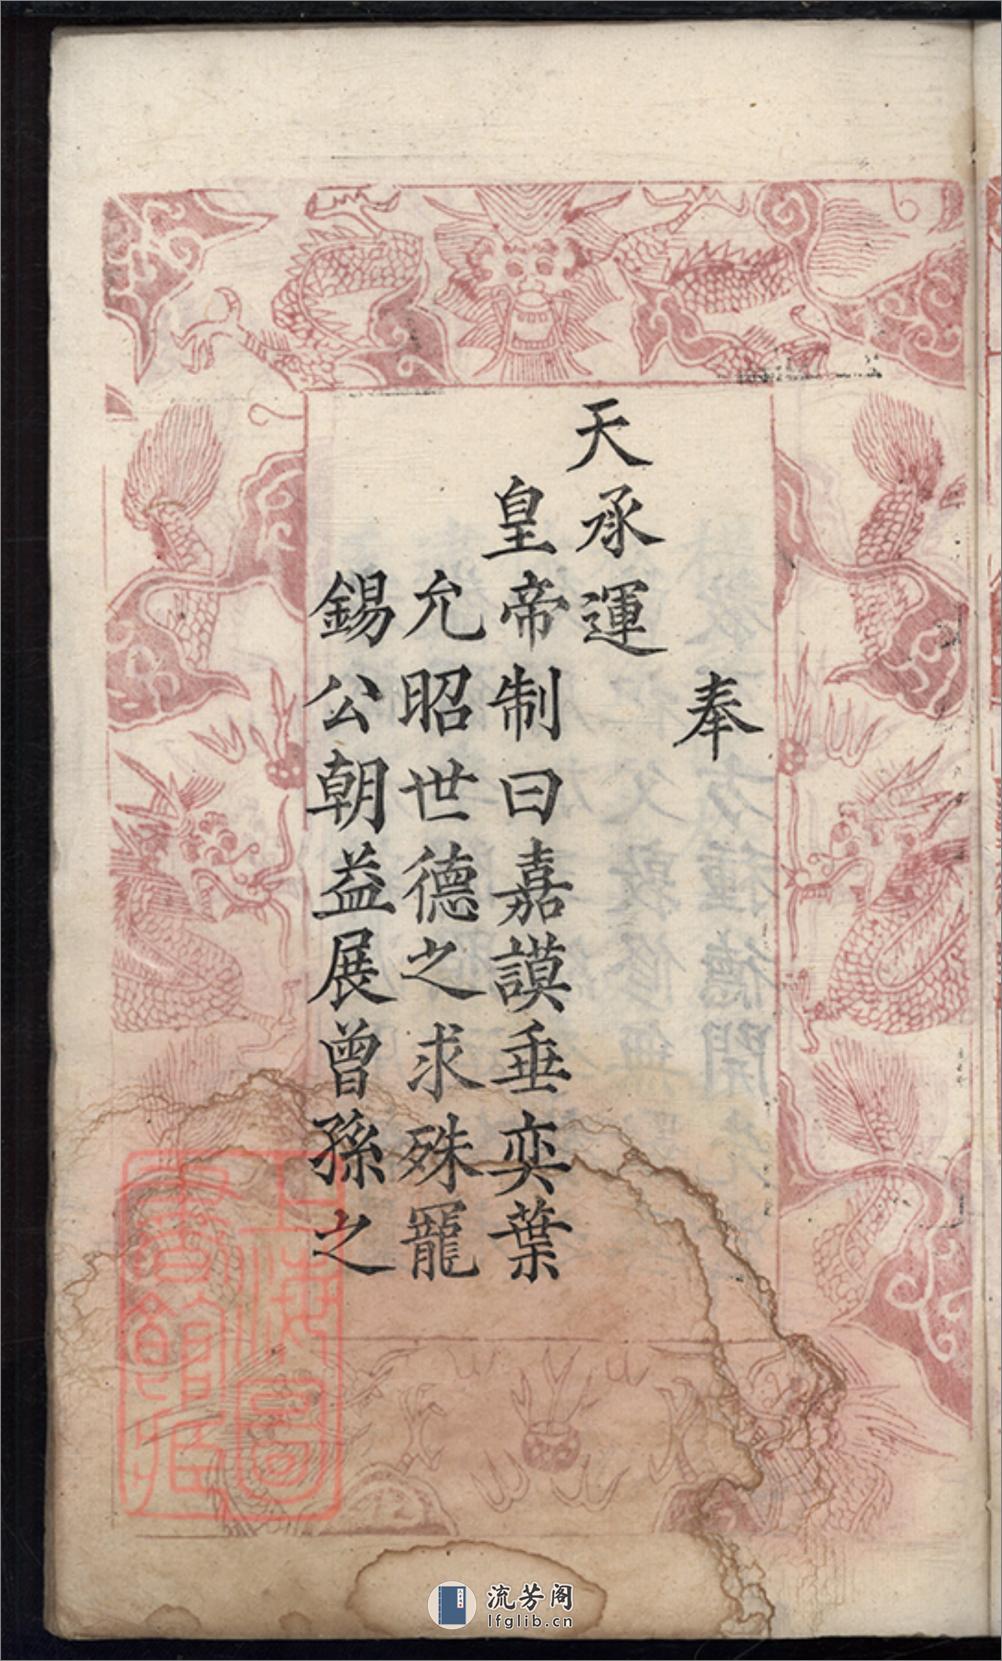 奉
天承運
皇帝制曰嘉謨垂奕葉
允昭世德之求殊寵
錫公朝益展曾孫之
上海圖
書館藏
流芳阁
lfglib.cn